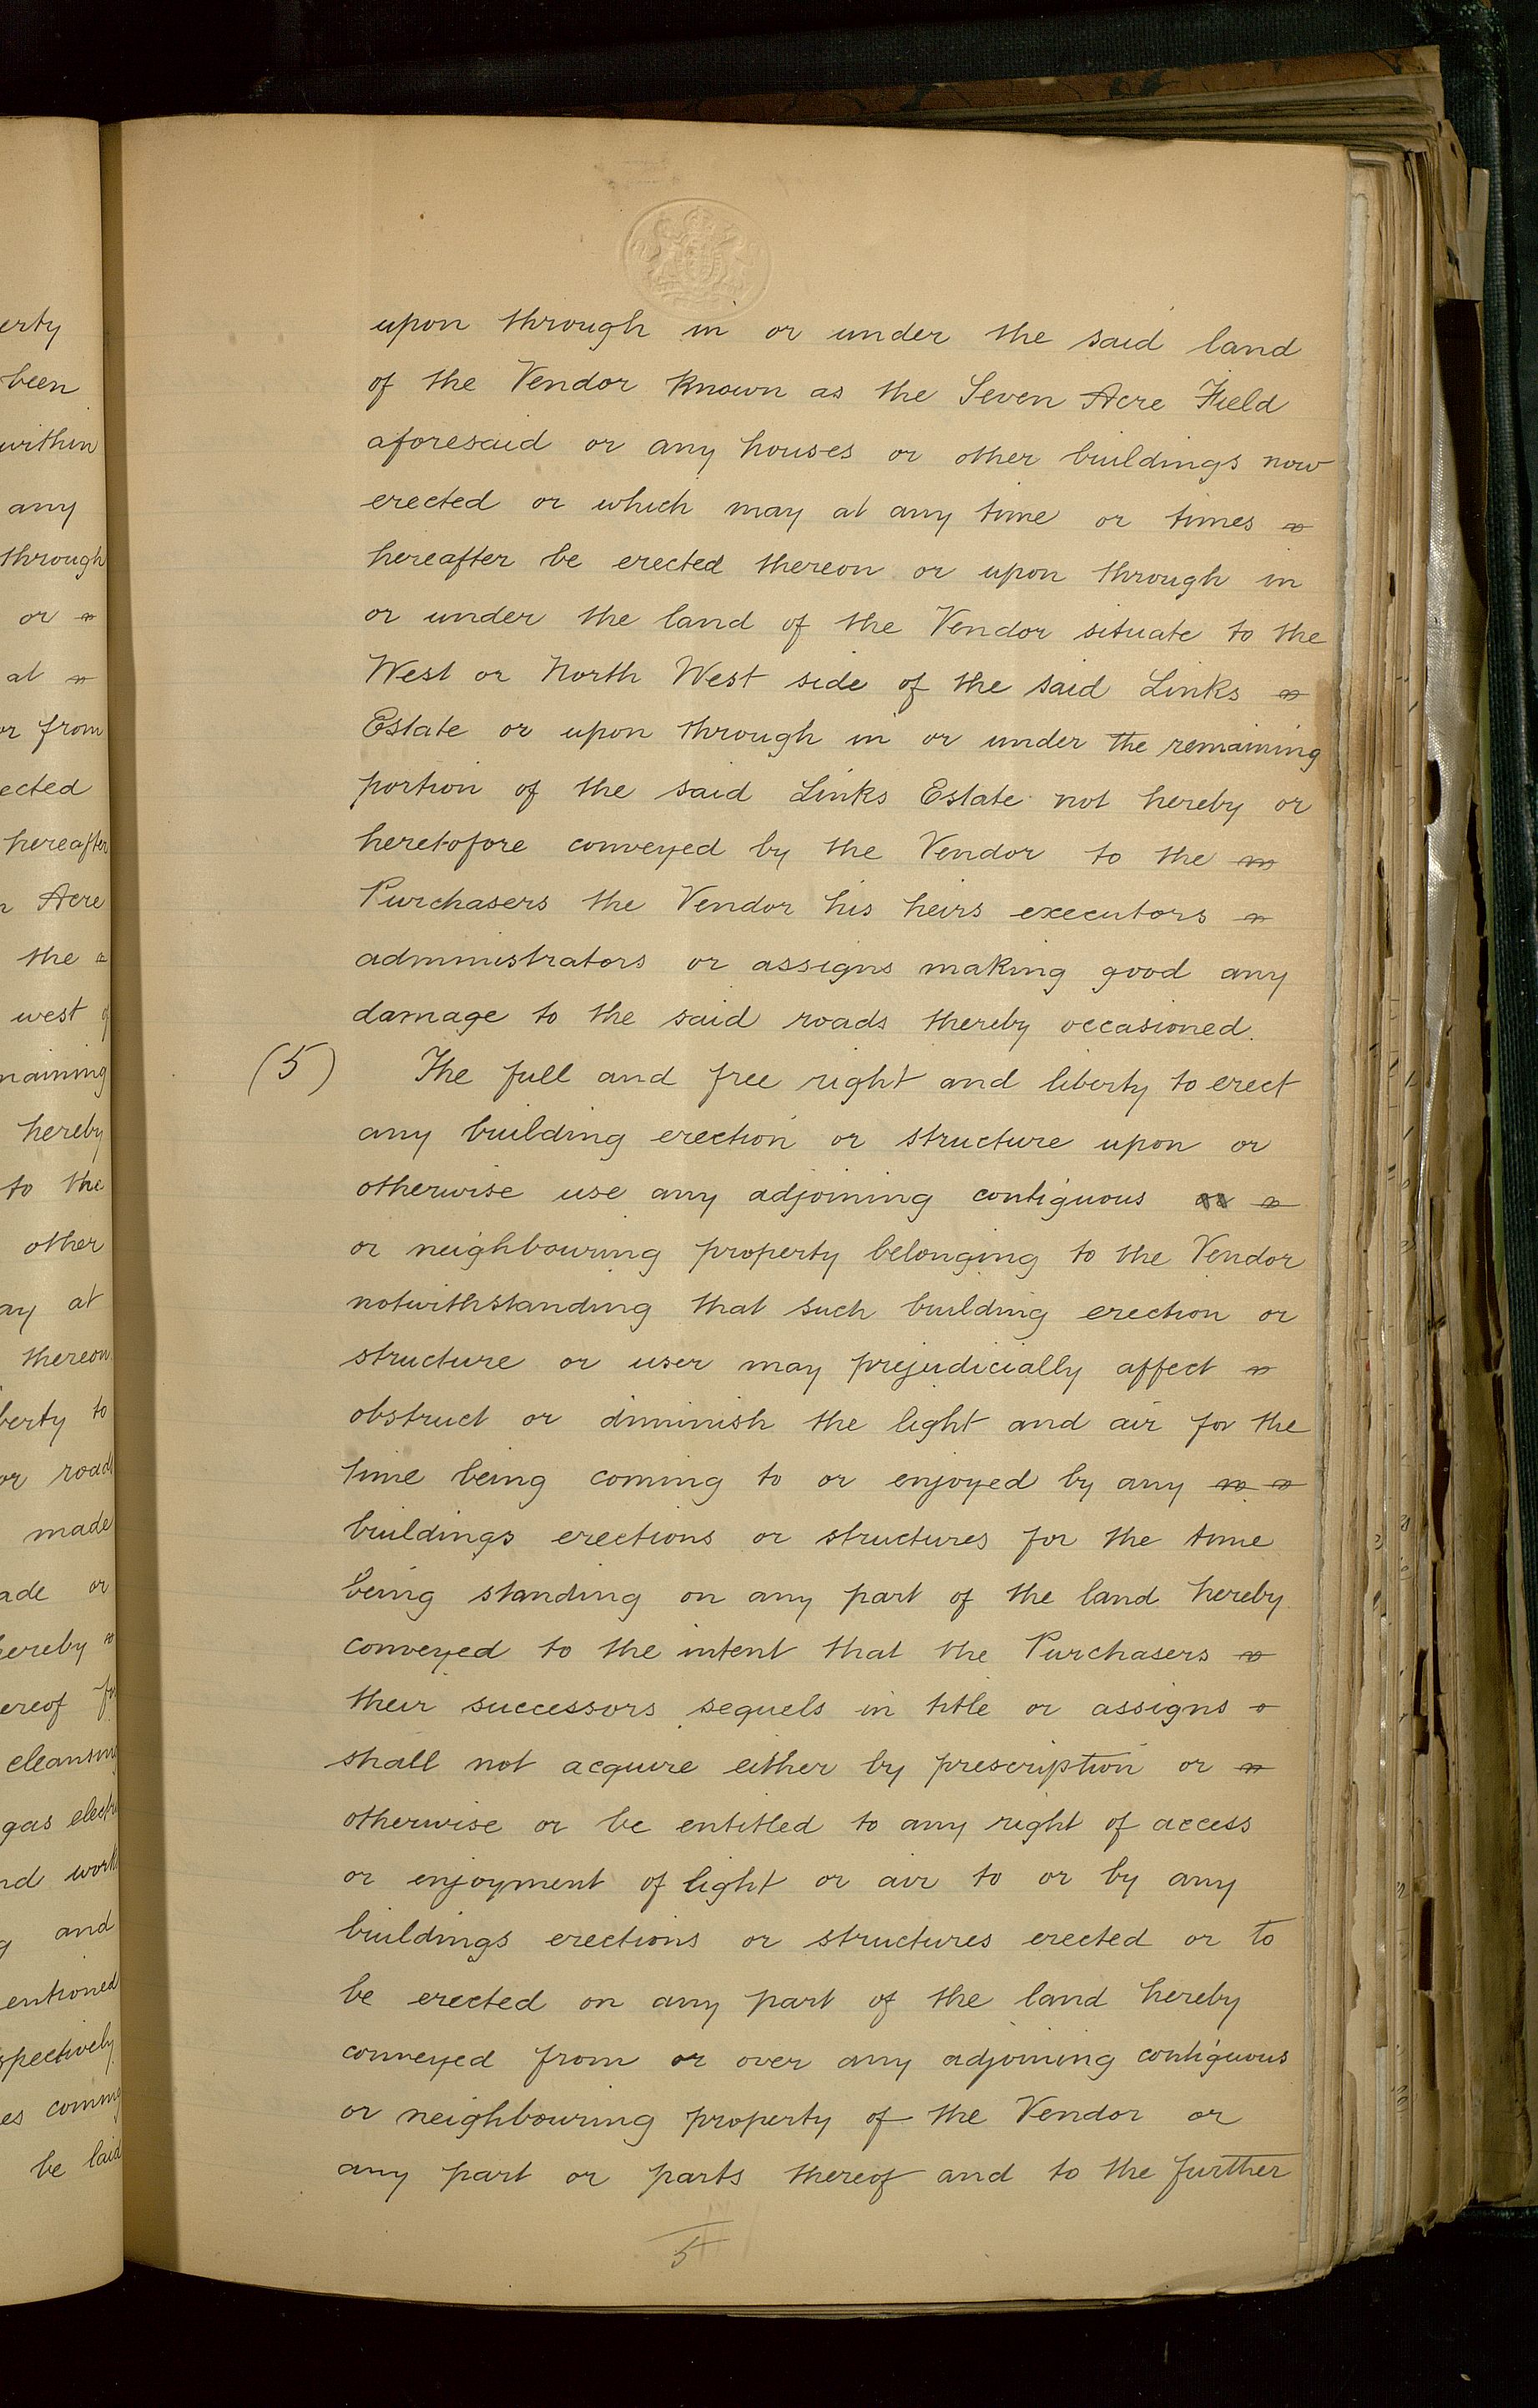 erty
been
within
any
through
or
at
or from
ected
hereafter
n Acre
the
west of
maining
hereby
to the
other
ay at
thereon
berty to
or road
made
ade or
hereby
ereof for
cleansing
gas elect
nd work
g and
entioned
spectively
es coming
be laid
upon through in or under the said land
of the Vendor known as the Seven Acre Field
aforesaid or any houses or other buildings now
erected or which may at any time or times
hereafter be erected thereon or upon through in
or under the land of the Vendor situate to the
West or North West side of the said Links
Estate or upon through in or under the remaining
portion of the said Links Estate not hereby or
heretofore conveyed by the Vendor to the
Purchasers the Vendor his heirs executors
administrators or assigns making good any
damage to the said roads thereby occasioned.
(5) The full and free right and liberty to erect
any building erection or structure upon or
otherwise use any adjoining contiguous
or neighbouring property belonging to the Vendor
notwithstanding that such building erection or
structure or user may prejudicially affect
obstruct or diminish the light and air for the
time being coming to or enjoyed by any
buildings erections or structures for the time
being standing on any part of the land hereby
conveyed to the intent that the Purchasers
their successors sequels in title or assigns
shall not acquire either by prescription or
otherwise or be entitled to any right of access
or enjoyment of light or air to or by any
buildings erections or structures erected or to
be erected on any part of the land hereby
conveyed from or over any adjoining contiguous
or neighbouring property of the Vendor or
any part or parts thereof and to the further
5